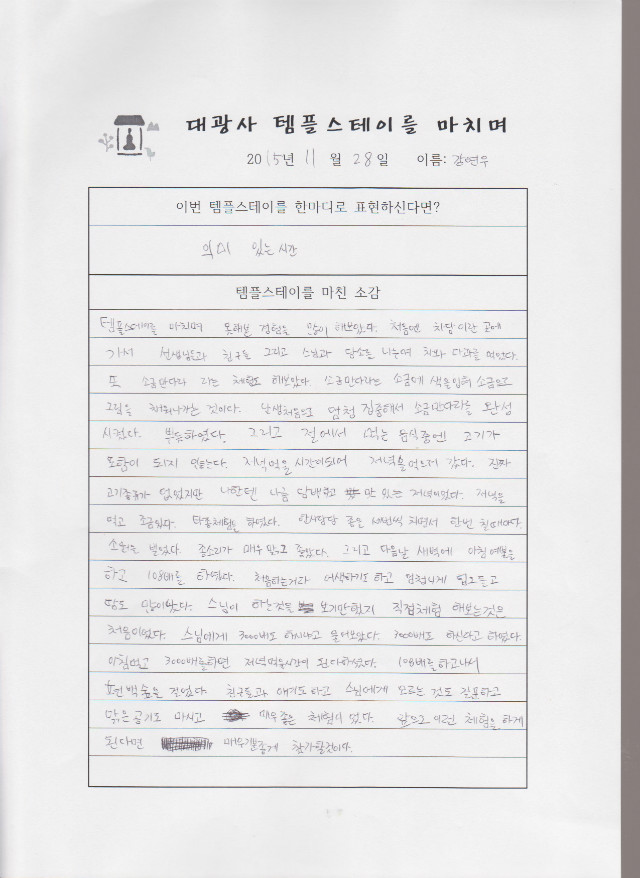 대광사 템플스테이를 마치며
2015년 11월 28일 이름: 강연우
이번 템플스테이를 한마디로 표현하신다면?
의미 있는 시간
템플스테이를 마친 소감
템플스테이를 마치며 못해본 경험을 많이 해보았다. 처음엔 차담이란 곳에
가서 선생님들과 친구들 그리고 스님과 담소를 나누며 차와 다과를 먹었다.
또 소금만다라 라는 체험도 해보았다. 소금만다라는 소금에 색을입혀 소금으로
그림을 채워나가는 것이다. 난생처음으로 엄청 집중해서 소금만다라를 완성
시켰다. 뿌듯하였다. 그리고 절에서 먹는 음식중엔 고기가
포함이 되지 않는다. 저녁먹을시간이되어 저녁을먹으러 갔다. 진짜
고기종류가 없었지만 나한텐 나름 담백하고 맛 있는 저녁이었다. 저녁을
먹고 조금있다. 타종체험을 하였다. 종을 10번씩 치면서 한번 칠때마다
소원을 빌었다. 종소리가 매우 맑고 좋았다. 그리고 다음날 새벽에 아침예불을
하고 108배를 하였다. 처음하는거라 어색하기도 하고 엄청나게 힘들고
땀도 많이났다. 스님이 하는것을 보기만했지 직접체험 해보는것은
처음이었다. 스님에게 3000배도 하시냐고 물어보았다. 3000배도 하신다고 하였다.
아침먹고 3000배를하면 저녁먹을시간이 된다하셨다. 108배를하고나서
편백숲을 걸었다 친구들과 얘기도하고 스님에게 모르는 것도 질문하고
맑은 공기도 마시고 매우좋은 체험이 었다. 앞으로 이런 체험을 하게
된다면 매우 좋게 참가할것이다.